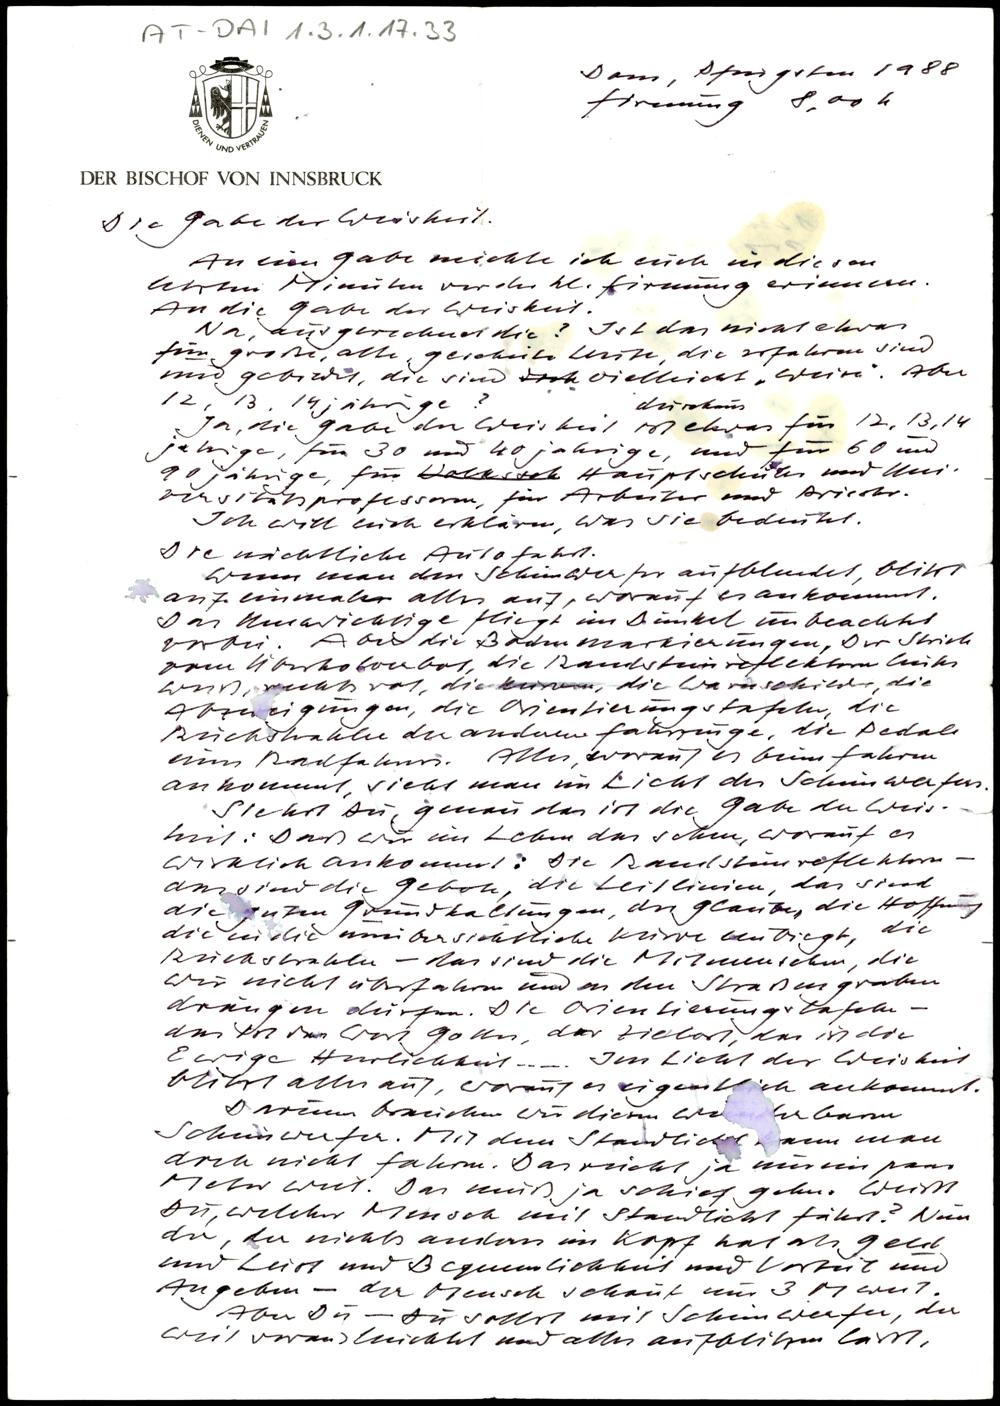 AT-DAI 1.3.1.17.33
Dom, Pfingsten 1988
Firmung 8,00 h
DIENEN UND VERTRAUEN
DER BISCHOF VON INNSBRUCK
Die Gabe der Weisheit.
An eine Gabe möchte ich euch in diesen
letzten Minuten vor der hl. Firmung erinnern.
An die Gabe der Weisheit.
Na, ausgerechnet die? Ist das nicht etwas
für große, alte, gescheite Leute, die erfahren sind
und gebildet, die sind doch vielleicht "weise". Aber
12, 13, 14jährige?
durchaus
Ja, die Gabe der Weisheit ist etwas für 12, 13, 14
jährige, für 30 und 40jährige, und für 60 und
90jährige, für Hauptschüler und Uni-
versitätsprofessoren, für Arbeiter und Priester.
Ich will euch erklären, was sie bedeutet.
Die nächtliche Autofahrt.
Wenn man den Scheinwerfer aufblendet, blitzt
auf einmal alles auf, worauf es ankommt.
Das Unwichtige fliegt im Dunkel unbeachtet
vorbei. Aber die Bodenmarkierungen, der Strich
vom Überholverbot, die Randsteinreflektoren links
weiß, rechts rot, die Kurven, die Warnschilder, die
Abzweigungen, die Orientierungstafeln, die
Rückstrahler der anderen Fahrzeuge, die Pedale
eines Radfahrers. Alles, worauf es beim Fahren
ankommt, sieht man im Licht des Scheinwerfers.
Siehst Du, genau das ist die Gabe der Weis-
heit: Daß wir im Leben das sehen, worauf es
wirklich ankommt: Die Randsteinreflektoren -
das sind die Gebote, die Leitlinien, das sind
die guten Grundhaltungen, der Glaube, die Hoffnung
die in die unübersichtliche Kurve einbiegt, die
Rückstrahler - das sind die Mitmenschen, die
wir nicht überfahren und in den Straßengraben
drängen dürfen. Die Orientierungstafeln -
das ist das Wort Gottes, der Zielort, das ist die
Ewige Herrlichkeit .... Im Licht der Weisheit
blitzt alles auf, worauf es eigentlich ankommt.
Darum brauchen wir diesen wunderbaren
Scheinwerfer. Mit dem Standlicht kann man
doch nicht fahren. Das reicht ja nur ein paar
Meter weit. Das muß ja schief gehen. Weißt
Du, welcher Mensch mit Standlicht fährt? Nun
der, der nichts anders im Kopf hat als Geld
und Lust und Bequemlichkeit und Vorteil und
Angeben - der Mensch schaut nur 3 M weit.
Aber Du - Du sollst mit Scheinwerfer, der
weit vorausleuchtet und alles aufblitzen lässt,